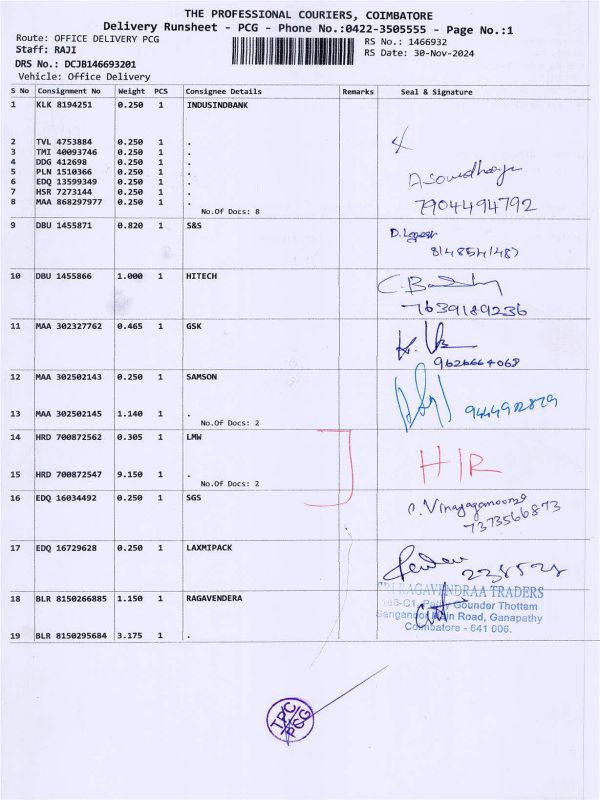 THE PROFESSIONAL COURIERS, COIMBATORE
Delivery Runsheet - PCG - Phone No.:0422-3505555 - Page No.:1
Route: OFFICE DELIVERY PCG
RS No.: 1466932
Staff: RAJI
RS Date: 30-Nov-2024
DRS No.: DCJB146693201
Vehicle: Office Delivery
S No Consignment No Weight PCS Consignee Details Remarks Seal & Signature
1 KLK 8194251 0.250 1 INDUSINDBANK
2 TVL 4753884 0.250 1 .
3 TMI 40093746 0.250 1 .
4 DDG 412698 0.250 1 .
5 PLN 1510366 0.250 1 .
6 EDQ 13599349 0.250 1 .
7 HSR 7273144 0.250 1 .
8 MAA 868297977 0.250 1 .
7904494792
No.Of Docs: 8
9 DBU 1455871 0.820 1 S&S
10 DBU 1455866 1.000 1 HITECH
7639189236
11 MAA 302327762 0.465 1 GSK
9626664068
12 MAA 302502143 0.250 1 SAMSON
13 MAA 302502145 1.140 1 .
No.Of Docs: 2
14 HRD 700872562 0.305 1 LMW
HIR
15 HRD 700872547 9.150 1 .
No.Of Docs: 2
16 EDQ 16034492 0.250 1 SGS
7373566873
17 EDQ 16729628 0.250 1 LAXMIPACK
SRI RAGAVENDRAA TRADERS
18 BLR 8150266885 1.150 1 RAGAVENDERA
Gounder Thottam
Main Road, Ganapathy
Coimbatore - 641 006.
19 BLR 8150295684 3.175 1 .
TPC
PCG